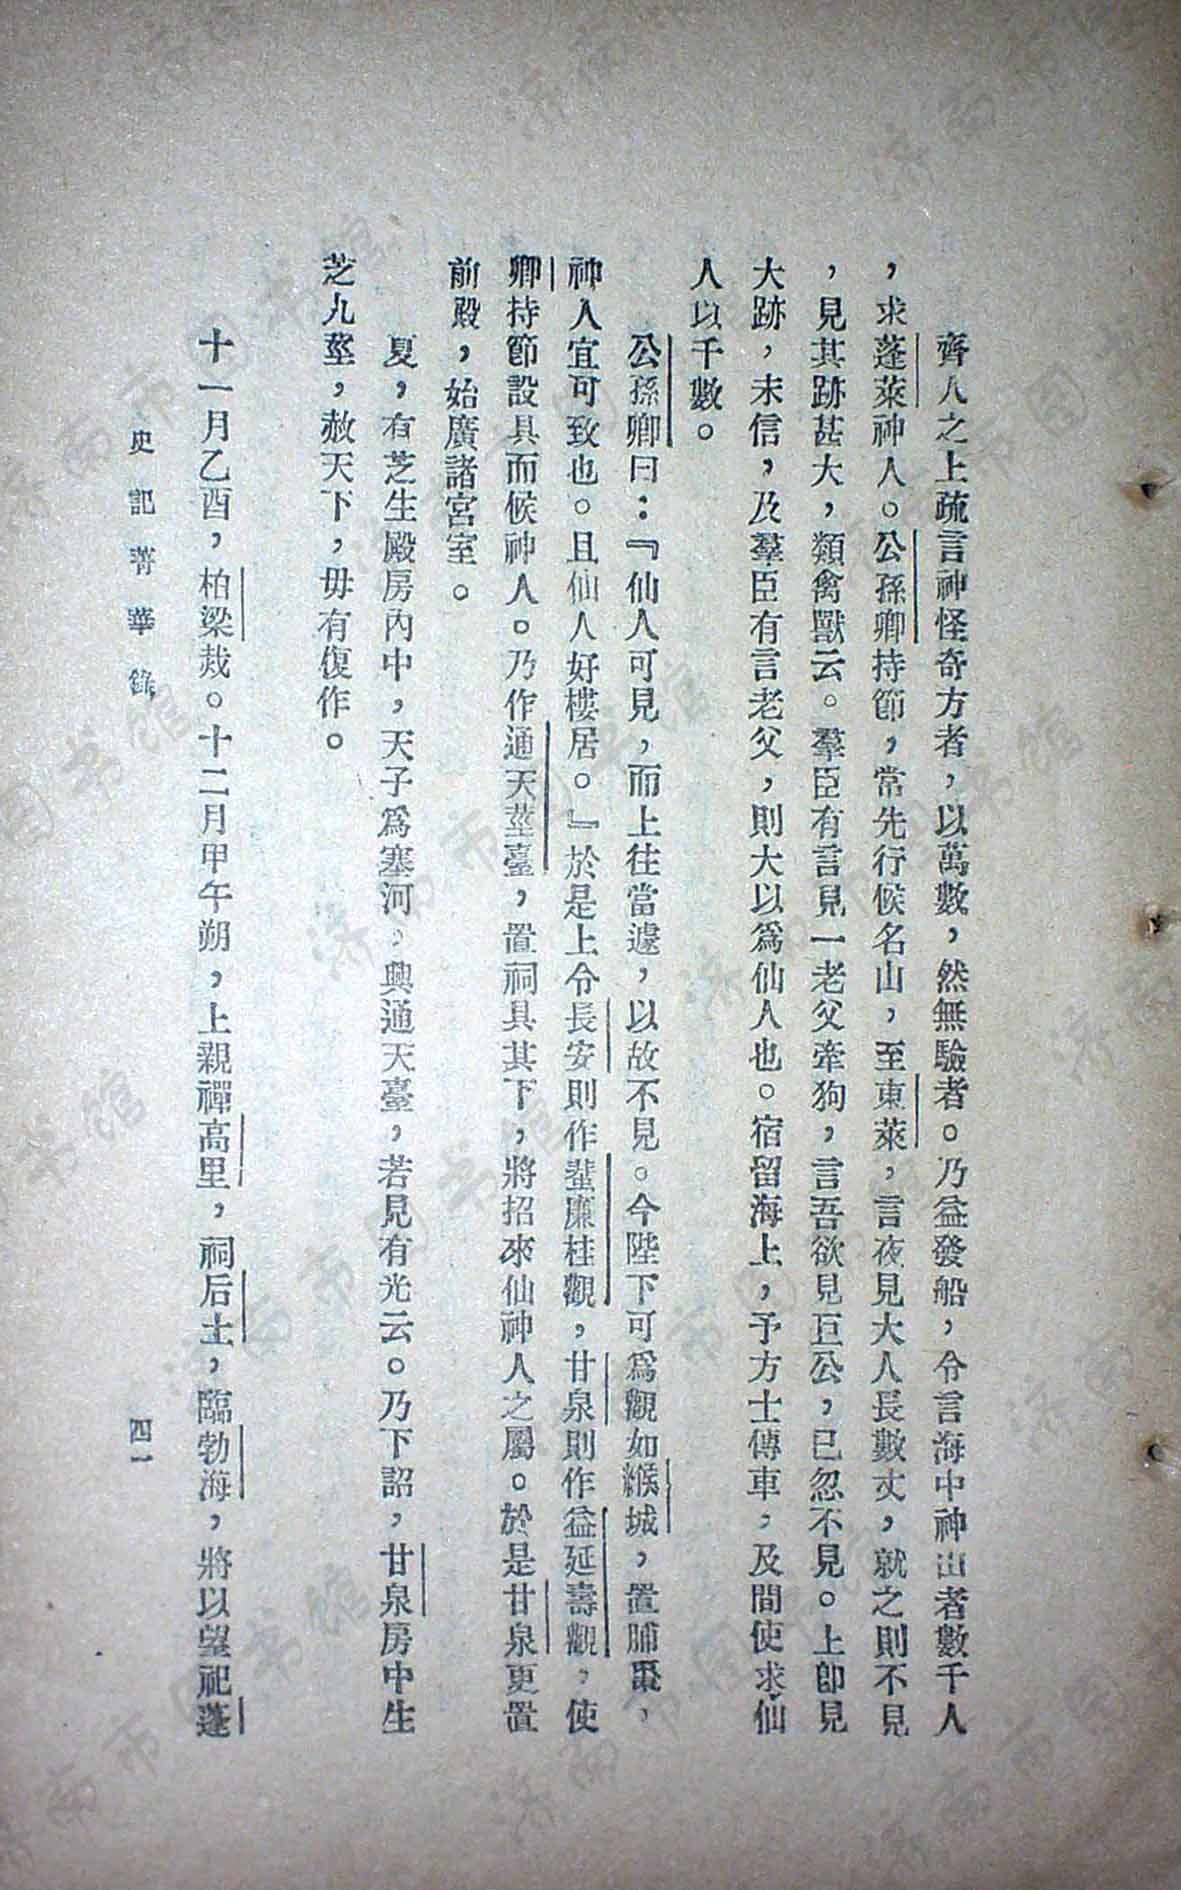 齊人之上疏言神怪奇方者，以萬數，然無驗者。乃益發船，令言海中神山者數千人
，求蓬萊神人。公孫卿持節，常先行候名山，至東萊，言夜見大人長數丈，就之則不見
，見其跡甚大，類禽獸云。羣臣有言見一老父牽狗，言吾欲見巨公，已忽不見。上卽見
大跡，未信，及羣臣有言老父，則大以爲仙人也。宿留海上，予方士傳車，及間使求仙
人以千數。
公孫卿曰：『仙人可見，而上往當遽，以故不見。今陛下可爲觀如緱城，置脯棗，
神人宜可致也。且仙人好樓居。』於是上令長安則作蜚廉桂觀，甘泉則作益延壽觀，使
卿持節設具而候神人。乃作通天莖臺，置祠具其下，將招來仙神人之屬。於是甘泉更置
前殿，始廣諸宮室。
夏，有芝生殿房內中，天子爲塞河，興通天臺，若見有光云。乃下詔，甘泉房中生
芝九莖，赦天下，毋有復作。
十一月乙酉，柏梁烖。十二月甲午朔，上親禪高里，祠后土，臨勃海，將以望祀蓬
史記菁華錄
四一
濟南市图书馆